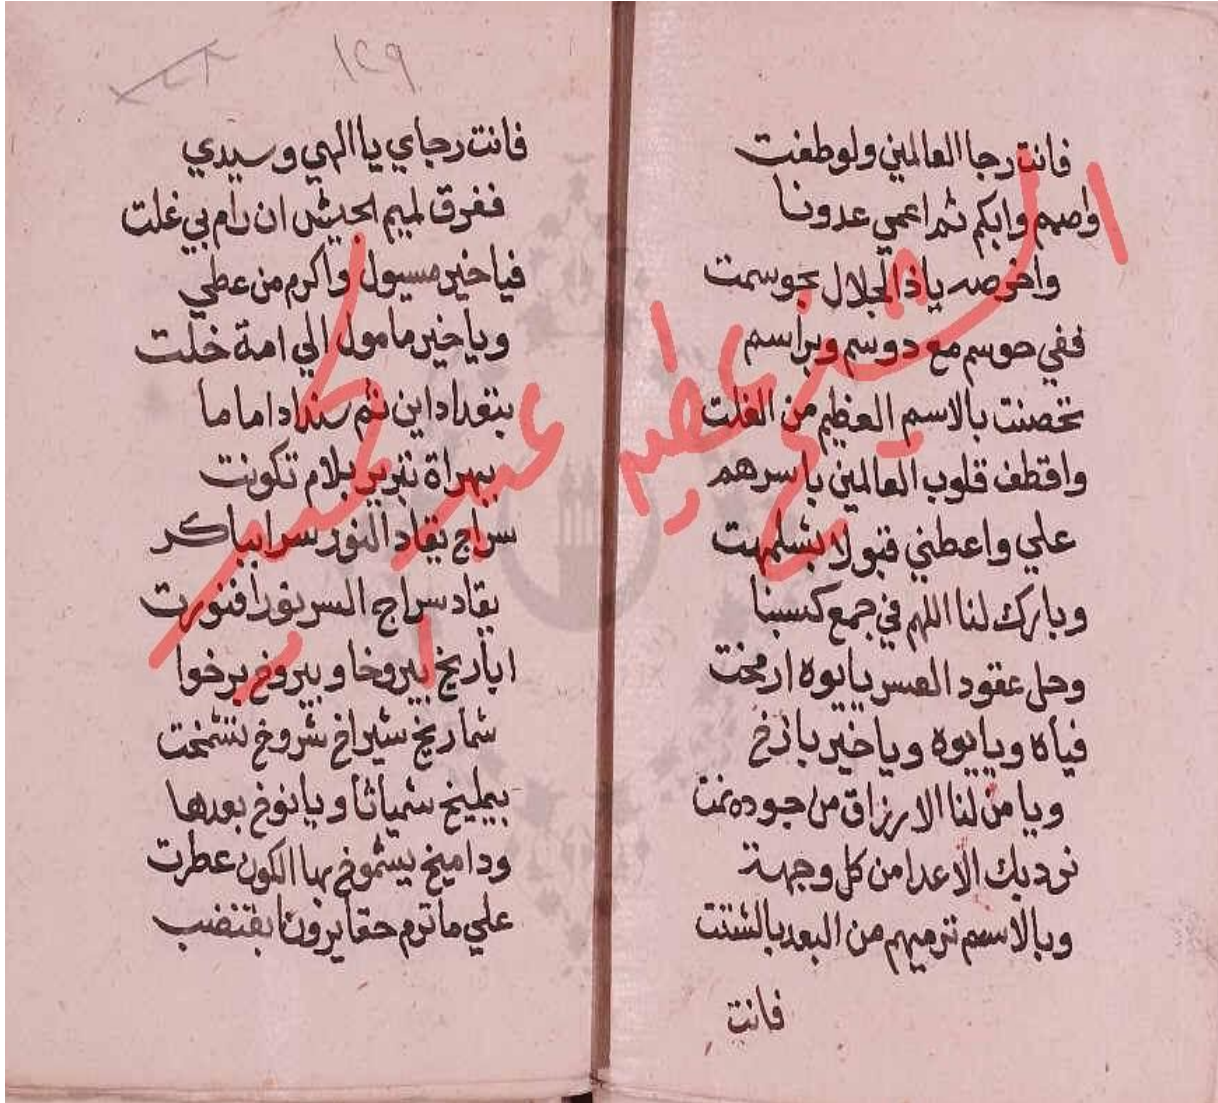 فانت رجا العالمين ولو طغت
واصمم وابكم ثم اعمي عدونا
واخرصه ياذا الجلال بحوسمت
ففي حوسم مع دوسم وبراسم
تحصنت بالاسم العظيم من الغلت
واقطف قلوب العالمين باسرهم
علي واعطني قبولا بشلمهت
وبارك لنا اللهم في جمع كسبنا
وحل عقود العسر يا يوه ارمخت
فياه ويا يوه ويا خير بازخ
ويا من لنا الارزاق من جوده نمت
نرد بك الاعدا من كل وجهة
وبالاسم ترميهم من البعد بالشتت
فانت
١٢٩
فانت رجاي يا الهي وسيدي
ففرق لميم الجيش ان رام بي غلت
فيا خير مسيول واكرم من عطي
ويا خير مامول الي امة خلت
بتعداد ابن ثم سنداد اما ما
ببهراة تبريز بلام تكونت
سراج يقاد النور سرا بباكر
يقاد سراج السر نورا فنورت
ابا ريخ بيروخا وبيروخ برخوا
شماريخ شيراخ شروخ تشمخت
بيمليخ شمياثا ويا نوخ بعدها
وداميخ يشموخ بها الكون عطرت
علي ما ترم حقا يرون بقتضب
الشيخ عظيم عبد الحميد